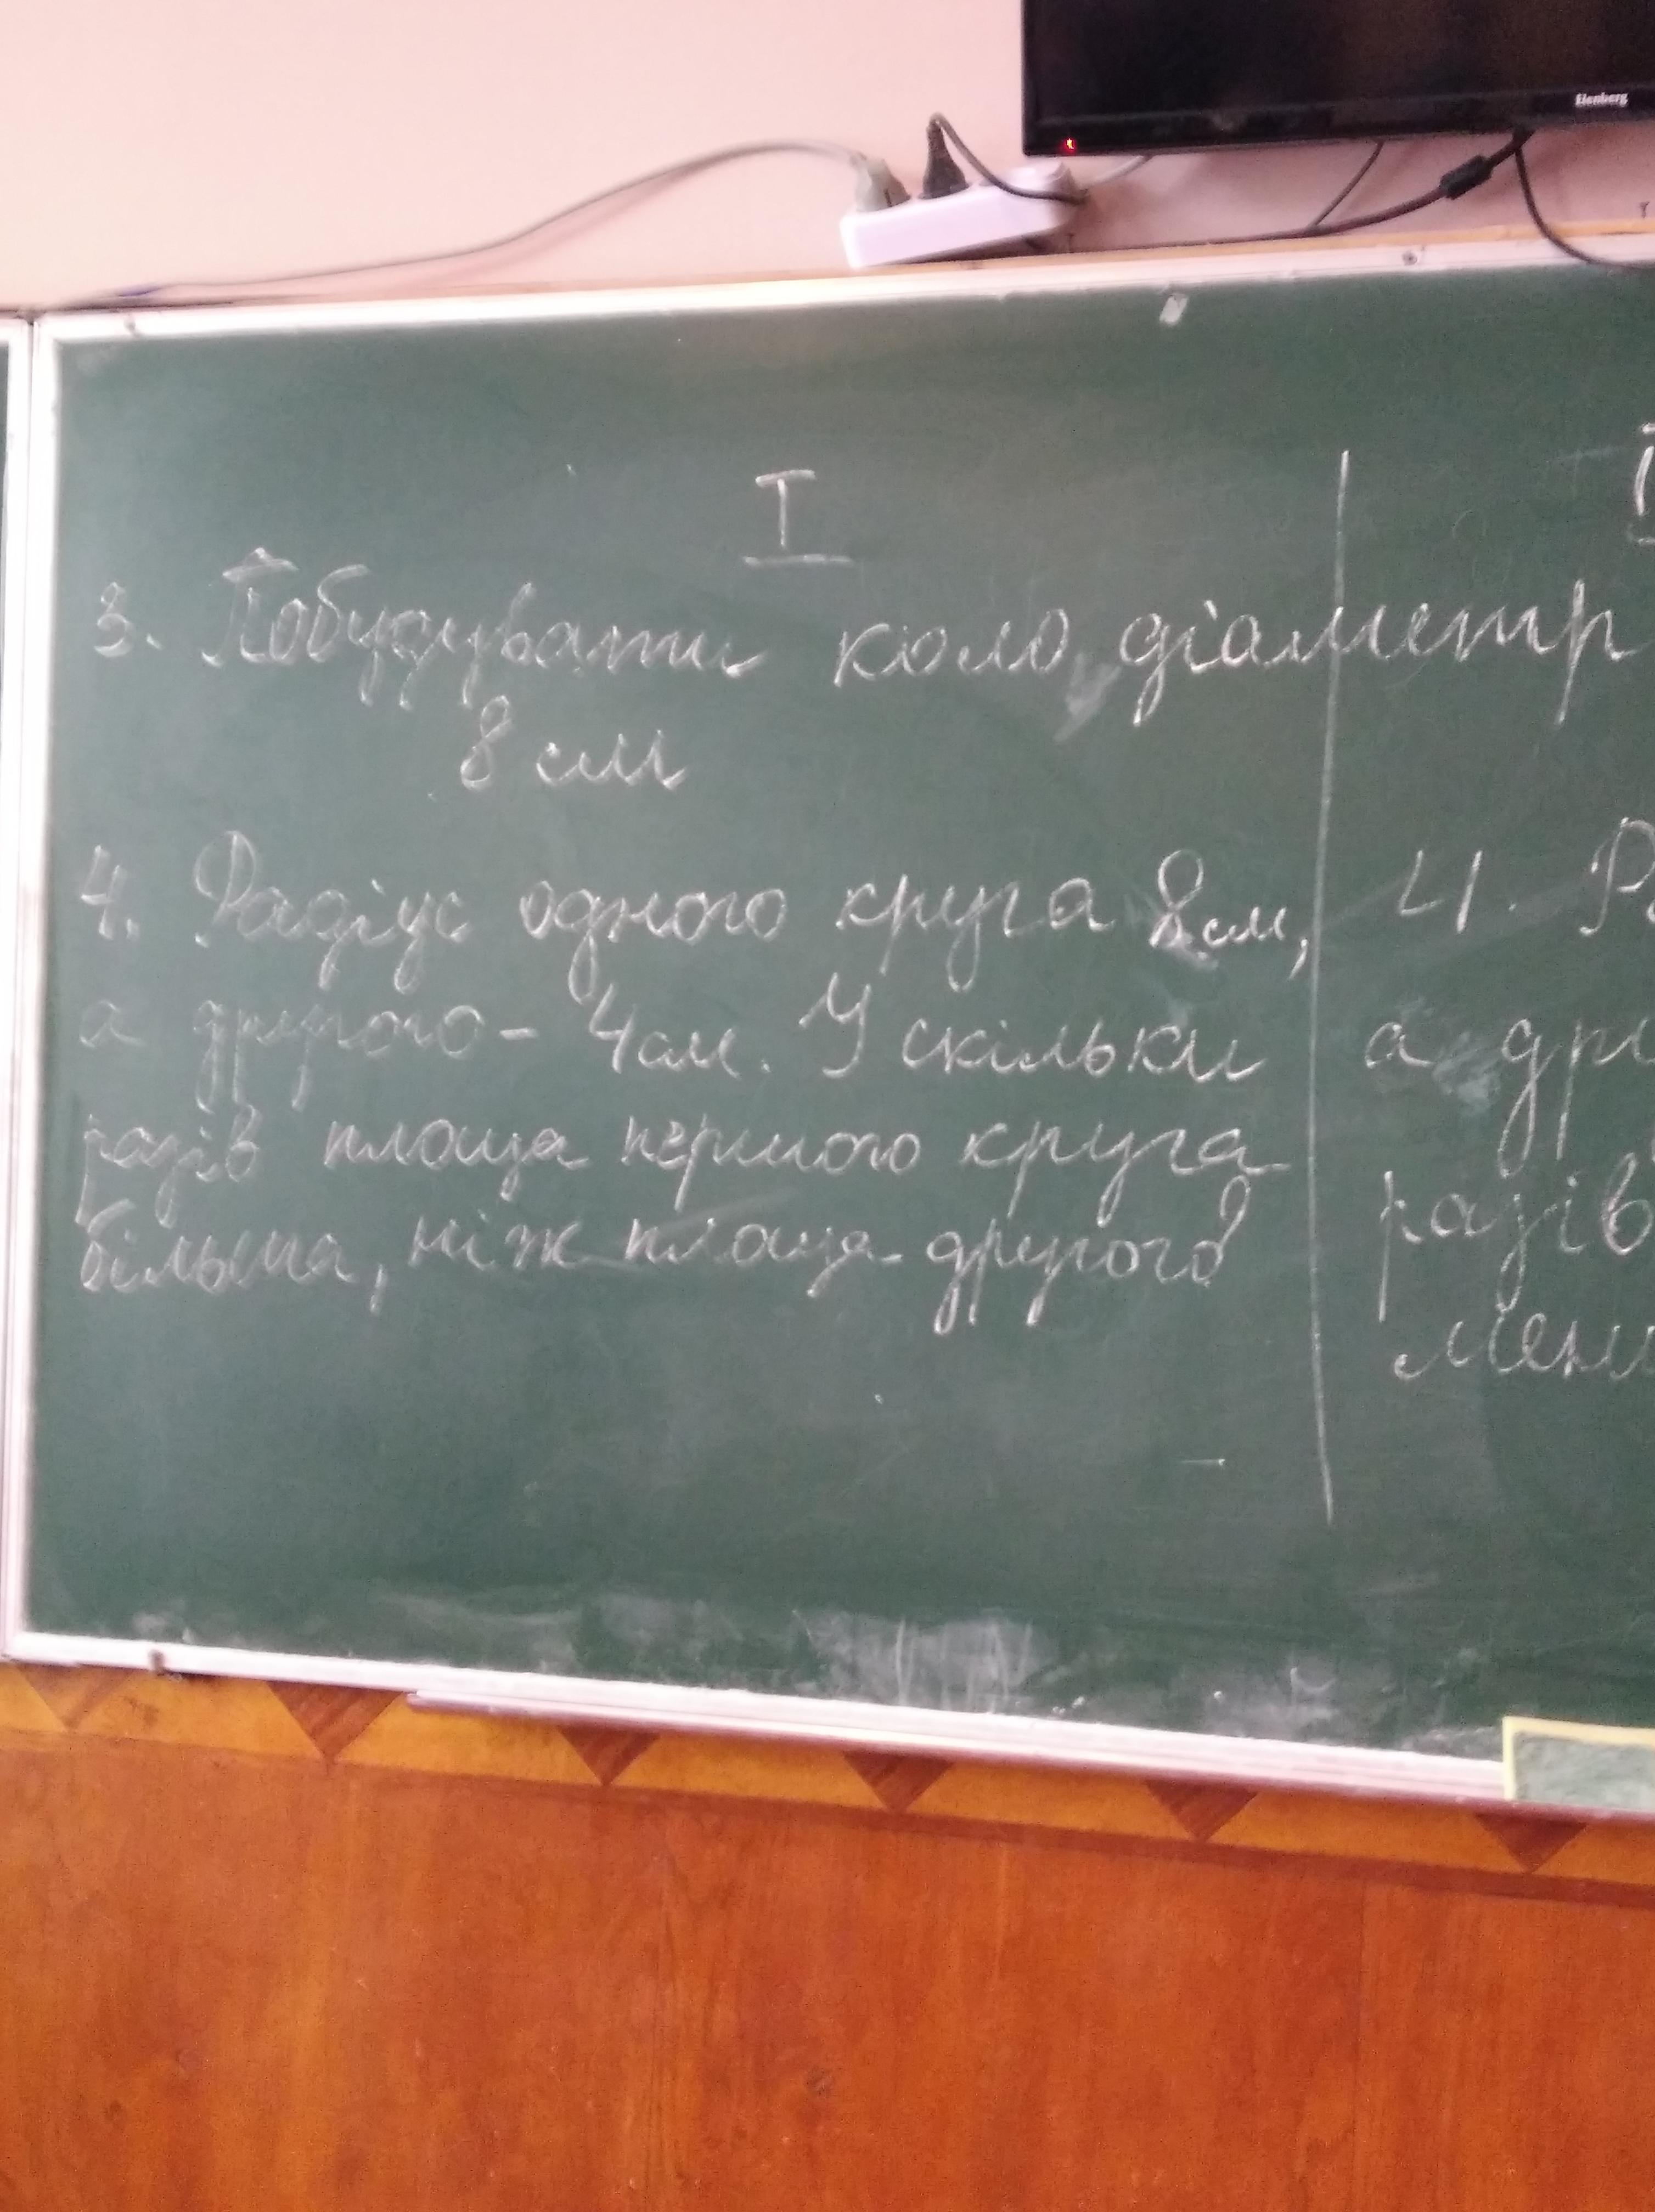 Elenberg
I
3. Побудувати коло, діаметр
8 см
4. Радіус одного круга 8 см,
а другого - 4 см. У скільки
разів площа першого круга
більша, ніж площа другого
4.
а
разів